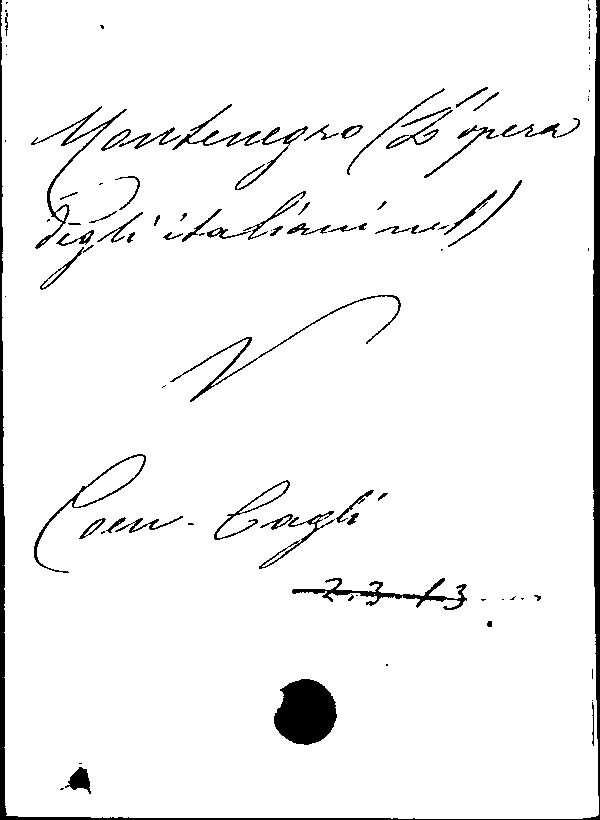 Montenegro (L'opera
degli italiani nel)
V
Coen-Cagli
2.3.13